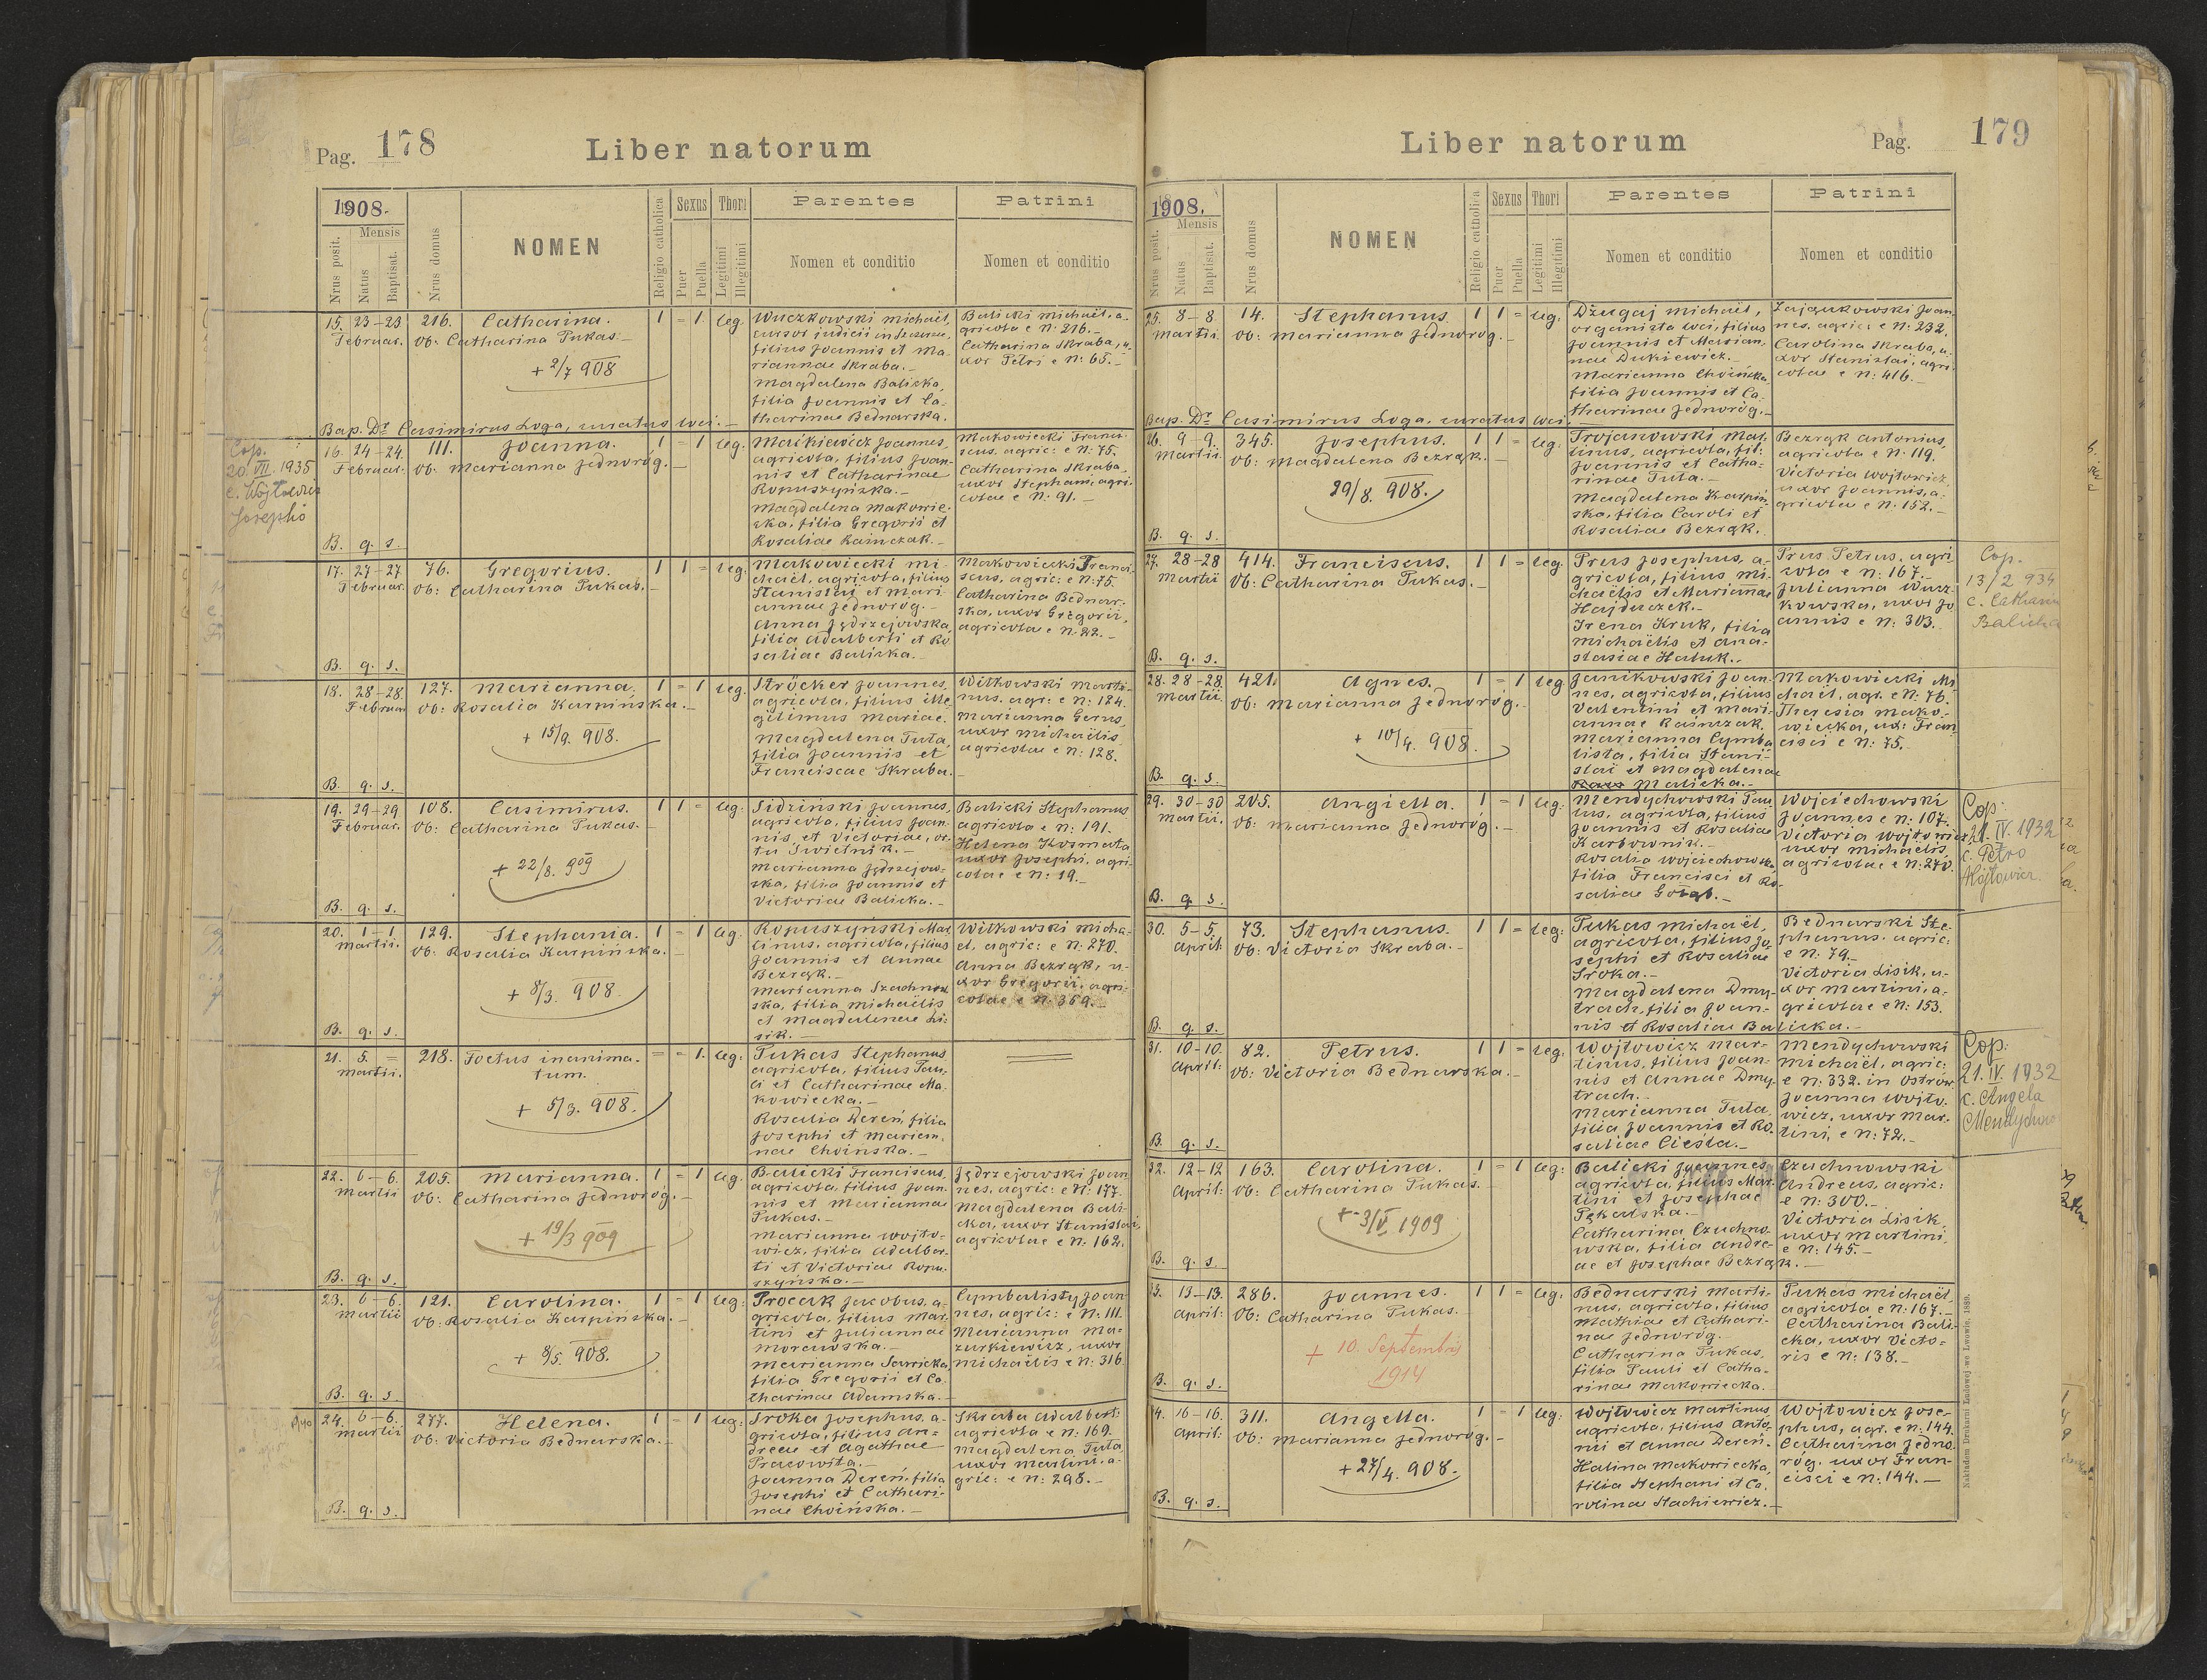 Pag. 178
Liber natorum
1908.
Nrus posit.
Mensis
Natus
Baptisat.
Nrus domus
NOMEN
Religio catholica
Sexus
Puer
Puella
Thori
Legitimi
Illegitimi
Parentes
Nomen et conditio
Patrini
Nomen et conditio
15. 23–23 Februar. 216. Catharina. 1 = 1. leg.
Ob: Catharina Pukas.–
+ 2/7 908
Wuczkowski Michaël,
cursor judicii in
filius Joannis et Ma-
riannae Skraba.–
Magdalena Balicka,
filia Joannis et Ca-
tharinae Bednarska.
Balicki Michaël, a-
gricola e N: 216.–
Catharina Skraba, u-
xor Petri e N: 65.–
Bap. Dr Casimirus Loga, curatus loci.–
Cop.
20.VII.1935
c. Wojtowicz
Josepho
16. 24–24. Februar. 111. Joanna. 1 = 1 leg.
Ob: Marianna Jednoróg.–
Maikiewicz Joannes,
agricola, filius Joan-
nis et Catharinae
Ropuszyńska.–
Magdalena Makowie-
cka, filia Gregorii et
Rosaliae Rainczak.–
Makowiecki Franci-
scus, agric: e N: 75.
Catharina Skraba,
uxor Stephani, agri-
colae e N: 91.–
B. q. s.
17. 27–27 Februar. 76. Gregorius. 1 1 = leg.
Ob: Catharina Pukas.–
Makowiecki Mi-
chaël, agricola, filius
Stanislai et Mari-
annae Jednoróg.–
Anna Jędrzejowska,
filia Adalberti et Ro-
saliae Balicka.–
Makowiecki Franci-
scus, agric: e N: 75.
Catharina Bednar-
ska, uxor Gregorii,
agricolae e N: 22.–
B. q. s.
18. 28–28. Februar. 127. Marianna. 1 = 1 leg.
Ob: Rosalia Karpińska.–
+ 15/9. 908.
Ströcker Joannes,
agricola, filius ille-
gitimus Mariae.
Magdalena Tuta,
filia Joannis et
Franciscae Skraba.–
Witkowski Marti-
nus, agr: e N: 124.
Marianna Gerus,
uxor Michaëlis
agricolae e N: 128.
B. q. s.
19. 29–29 Februar. 108. Casimirus. 1 1 = leg.
Ob: Catharina Pukas.–
+ 22/8. 909
Sidziński Joannes,
agricola, filius Joan-
nis, et Victoriae, or-
tu Swietnik.–
Marianna Jędrzejow-
ska, filia Joannis et
Victoriae Balicka.–
Balicki Stephanus
agricola e N: 191.
Helena Kosmata
uxor Josephi, agri-
colae e N: 19.–
B. q. s.
20. 1–1 Martii. 129. Stephania. 1 = 1 leg.
Ob: Rosalia Karpińska.–
+ 8/3. 908.
Ropuszyński Mar-
tinus, agricola, filius
Joannis et Annae
Bezrąk.–
Marianna Szachnow-
ska, filia Michaëlis
et Magdalenae Li-
sik.
Witkowski Micha-
el, agric: e N: 270.
Anna Bezrąk, u-
xor Gregorii, agri-
colae e N: 369.–
B. q. s.
21. 5. = Martii. 218. Foetus inanima- = – 1. leg:
tum.
+ 5/3. 908.
Pukas Stephanus
agricola, filius Pau-
li et Catharinae Ma-
kowiecka.–
Rosalia Dereń, filia
Josephi et Marian-
nae Choinska.–
22. 6–6. Martii 205. Marianna. 1 = 1 leg.
Ob: Catharina Jednoróg.–
+ 19/3 909
Balicki Franciscus,
agricola, filius Joan-
nis et Mariannae
Pukas.–
Marianna Wojto-
wicz, filia Adalber-
ti et Victoriae Ropu-
szyńska.–
Jędrzejowski Joan-
nes, agric: e N: 177.
Magdalena Bali-
cka, uxor Stanislai,
agricolae e N: 162.
B. q. s.
23. 6–6. Martii 121. Carolina. 1 = 1 leg.
Ob: Rosalia Karpińska.–
+ 8/5. 908.
Procak Jacobus, a-
gricola, filius Mar-
tini et Juliannae
Morawska.–
Marianna Sawicka,
filia Gregorii et Ca-
tharinae Adamska.–
Cymbalisty Joan-
nes, agric: e N: 111.
Marianna Ma-
zurkiewicz, uxor
Michaëlis e N: 316
B. q. s.
24. 6–6. Martii 277. Helena. 1 = 1 leg:
Ob: Victoria Bednarska.–
Sroka Josephus, a-
gricola, filius An-
dreae et Agathae
Pracowita.–
Joanna Dereń, filia
Josephi et Cathari-
nae Choińska.–
Skraba Adalbert:
agricola e N: 169.
Magdalena Tuta
uxor Martini, a-
gric: e N: 298.–
B. q. s.
Liber natorum
Pag. 179
1908.
Nrus posit.
Mensis
Natus
Baptisat.
Nrus domus
NOMEN
Religio catholica
Sexus
Puer
Puella
Thori
Legitimi
Illegitimi
Parentes
Nomen et conditio
Patrini
Nomen et conditio
25. 8–8 Martii. 14. Stephanus. 1 1 = leg:
Ob: Marianna Jednoróg.–
Dżugaj Michaël,
organista loci, filius
Joannis et Marian-
nae Dukiewicz.–
Marianna Choińska,
filia Joannis et Ca-
tharinae Jednoróg.–
Zajączkowski Joan-
nes, agric: e N: 232.
Carolina Skraba, u-
xor Stanislai, agri-
colae e N: 416.–
Bap. Dr Casimirus Loga, curatus loci.
26. 9–9. Martii. 345. Josephus. 1 1 = leg.
Ob: Magdalena Bezrąk.–
29/8. 908.
Trojanowski Mar-
tinus, agricola, fil:
Joannis et Catha-
rinae Tuta.–
Magdalena Karpiń-
ska, filia Caroli et
Rosaliae Bezrąk.
Bezrąk Antonius,
agricola e N: 119.
Victoria Wojtowicz,
uxor Joannis, a-
gricolae e N: 152.–
B. q. s.
27. 28–28 Martii 414. Franciscus. 1 1 = leg.
Ob: Catharina Pukas.–
Prus Josephus, a-
gricola, filius Mi-
chaëlis et Mariannae
Hajduczek.–
Irena Kruk, filia
Michaëlis et Ana-
stasiae Hatuk.–
Prus Petrus, agri-
cola e N: 167.–
Julianna Wucz-
kowska, uxor Jo-
annis e N: 303.
Cop.
13/2 934
c. Catharin
Balicka
B. q. s.
28. 28–28 Martii. 421. Agnes. 1 = 1 leg
Ob: Marianna Jednoróg.–
+ 10/4. 908.
Janikowski Joan-
nes, agricola, filius
Valentini et Mari-
annae Rainczak.
Marianna Cymba-
lista, filia Stani-
slai et Magdalenae
Malicka.–
Makowiecki Mi-
chaël, agr. e N: 76.
Theresia Mako-
wiecka, ux: Fran-
cisci e N: 75.
B. q. s.
29. 30–30 Martii. 205. Angiella. 1 = 1 leg:
Ob: Marianna Jednoróg.–
Mendychowski Pau-
lus, agricola, filius
Joannis et Rosaliae
Karbownik.–
Rosalia Wojciechowska,
filia Francisci et Ro-
saliae Gołąb.–
Wojciechowski
Joannes e N: 107.
Victoria Wojtowicz,
uxor Michaëlis
agricolae e N: 270.
Cop:
21.IV.1932
c. Petro
Wojtowicz.
B. q. s.
30. 5–5. April: 73. Stephanus. 1 1 = leg:
Ob: Victoria Skraba.–
Pukas Michaël,
agricola, filius Jo-
sephi et Rosaliae
Sroka.–
Magdalena Dmy-
trach, filia Joan-
nis et Rosaliae Balicka.–
Bednarski Ste-
phanus, agric:
e N: 79.–
Victoria Lisik, u-
xor Martini, a-
gricolae e N: 153.
B. q. s.
31. 10–10. April: 82. Petrus. 1 1 = leg:
Ob: Victoria Bednarska.–
Wojtowicz Mar-
tinus, filius Joan-
nis et Annae Dmy-
trach.–
Marianna Tuta,
filia Joannis et Ro-
saliae Cieśla.–
Mendychowski
Michaël, agric:
e N: 332. in Ostrów
Joanna Wojto-
wicz, uxor Mar-
tini, e N: 72.–
Cop:
21.IV.1932
c. Angela
Mendycho
B. q. s.
32. 12–12 April: 163. Carolina. 1 = 1 leg:
Ob: Catharina Pukas.–
+ 3/V 1909
Balicki Joannes,
agricola, filius Mar-
tini et Josephae
Pękalska.–
Catharina Czachno-
wska, filia Andre-
ae et Josephae Bezrąk.–
Czachnowski
Andreas, agric:
e N: 300.–
Victoria Lisik,
uxor Martini,
e N: 145.–
B. q. s.
33. 13–13. April: 286. Joannes. 1 1 = leg:
Ob: Catharina Pukas.
+ 10. Septembris
1914
Bednarski Marti-
nus, agricola, filius
Mathiae et Cathari-
nae Jednoróg.
Catharina Pukas,
filia Pauli et Catha-
rinae Makowiecka.
Pukas Michaël,
agricola e N: 167.–
Catharina Bali-
cka, uxor Victo-
ris e N: 138.–
B. q. s.
34. 16–16. April: 311. Angella. 1 = 1 leg:
Ob: Marianna Jednoróg.–
+ 27/4. 908.
Wojtowicz Martinus,
agricola, filius Anto-
nii et Annae Dereń.
Halina Makowiecka,
filia Stephani et Ca-
rolinae Stachiewicz.–
Wojtowicz Jose-
phus, agr. e N: 144.
Catharina Jedno-
róg, uxor Fran-
cisci e N: 144.–
B. q. s.
Nakładem Drukarni Ludowej we Lwowie. 1899.